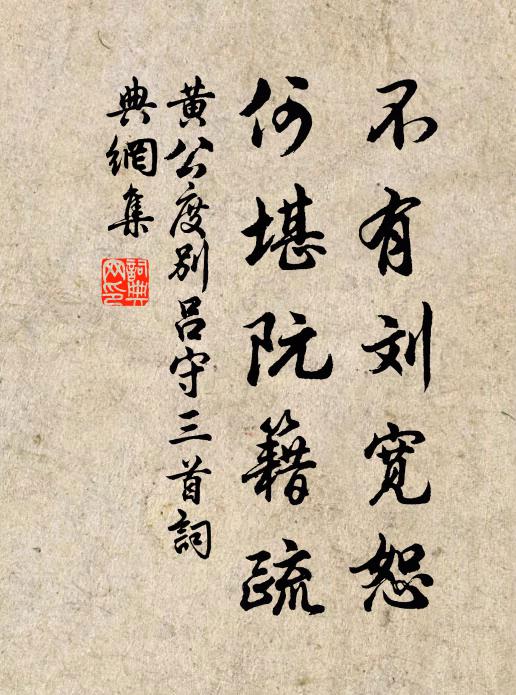 不有刘寛恕
何堪阮籍疏
黄公度别吕守三首詞
典網集
詞典
网印